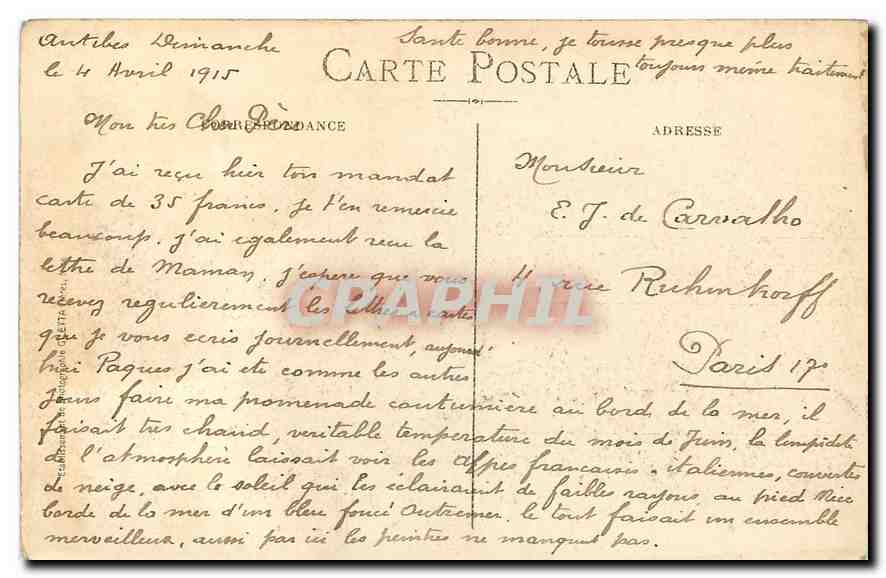 Antibes Dimanche
le 4 Avril 1915
Sante bonne, je tousse presque plus
toujours meme traitement
CARTE POSTALE
CORRESPONDANCE
ADRESSE
Mon tres Cher Père
J'ai reçu hier ton mandat
carte de 35 francs, je t'en remercie
beaucoup, j'ai egalement recu la
lettre de Maman, j'espere que vous
recevez regulierement les lettres cartes
que je vous ecris journellement, aujourd'
hui Paques j'ai ete comme les autres
jours faire ma promenade coutumiere au bord de la mer, il
faisait tres chaud, veritable temperature du mois de Juin, la limpidite
de l'atmosphère laissait voir les Alpes françaises italiennes, couvertes
de neige, avec le soleil qui les éclairaient de faibles rayons, au pied Nice
borde de la mer d'un bleu foncé Outremer. le tout faisait un ensemble
merveilleux, aussi par ici les peintres ne manquent pas.
Monsieur
E. J. de Carvalho
4 rue Ruhmkorff
Paris 17e
CPAPHIL
Etablissement de Photographie GILETTA